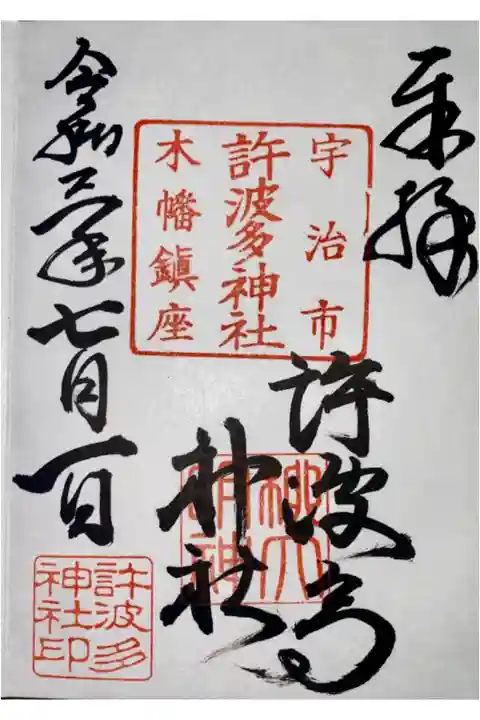 奉拝
宇治市
許波多神社
木幡鎮座
許波多
神社
令和三年七月一日
許波多
神社印